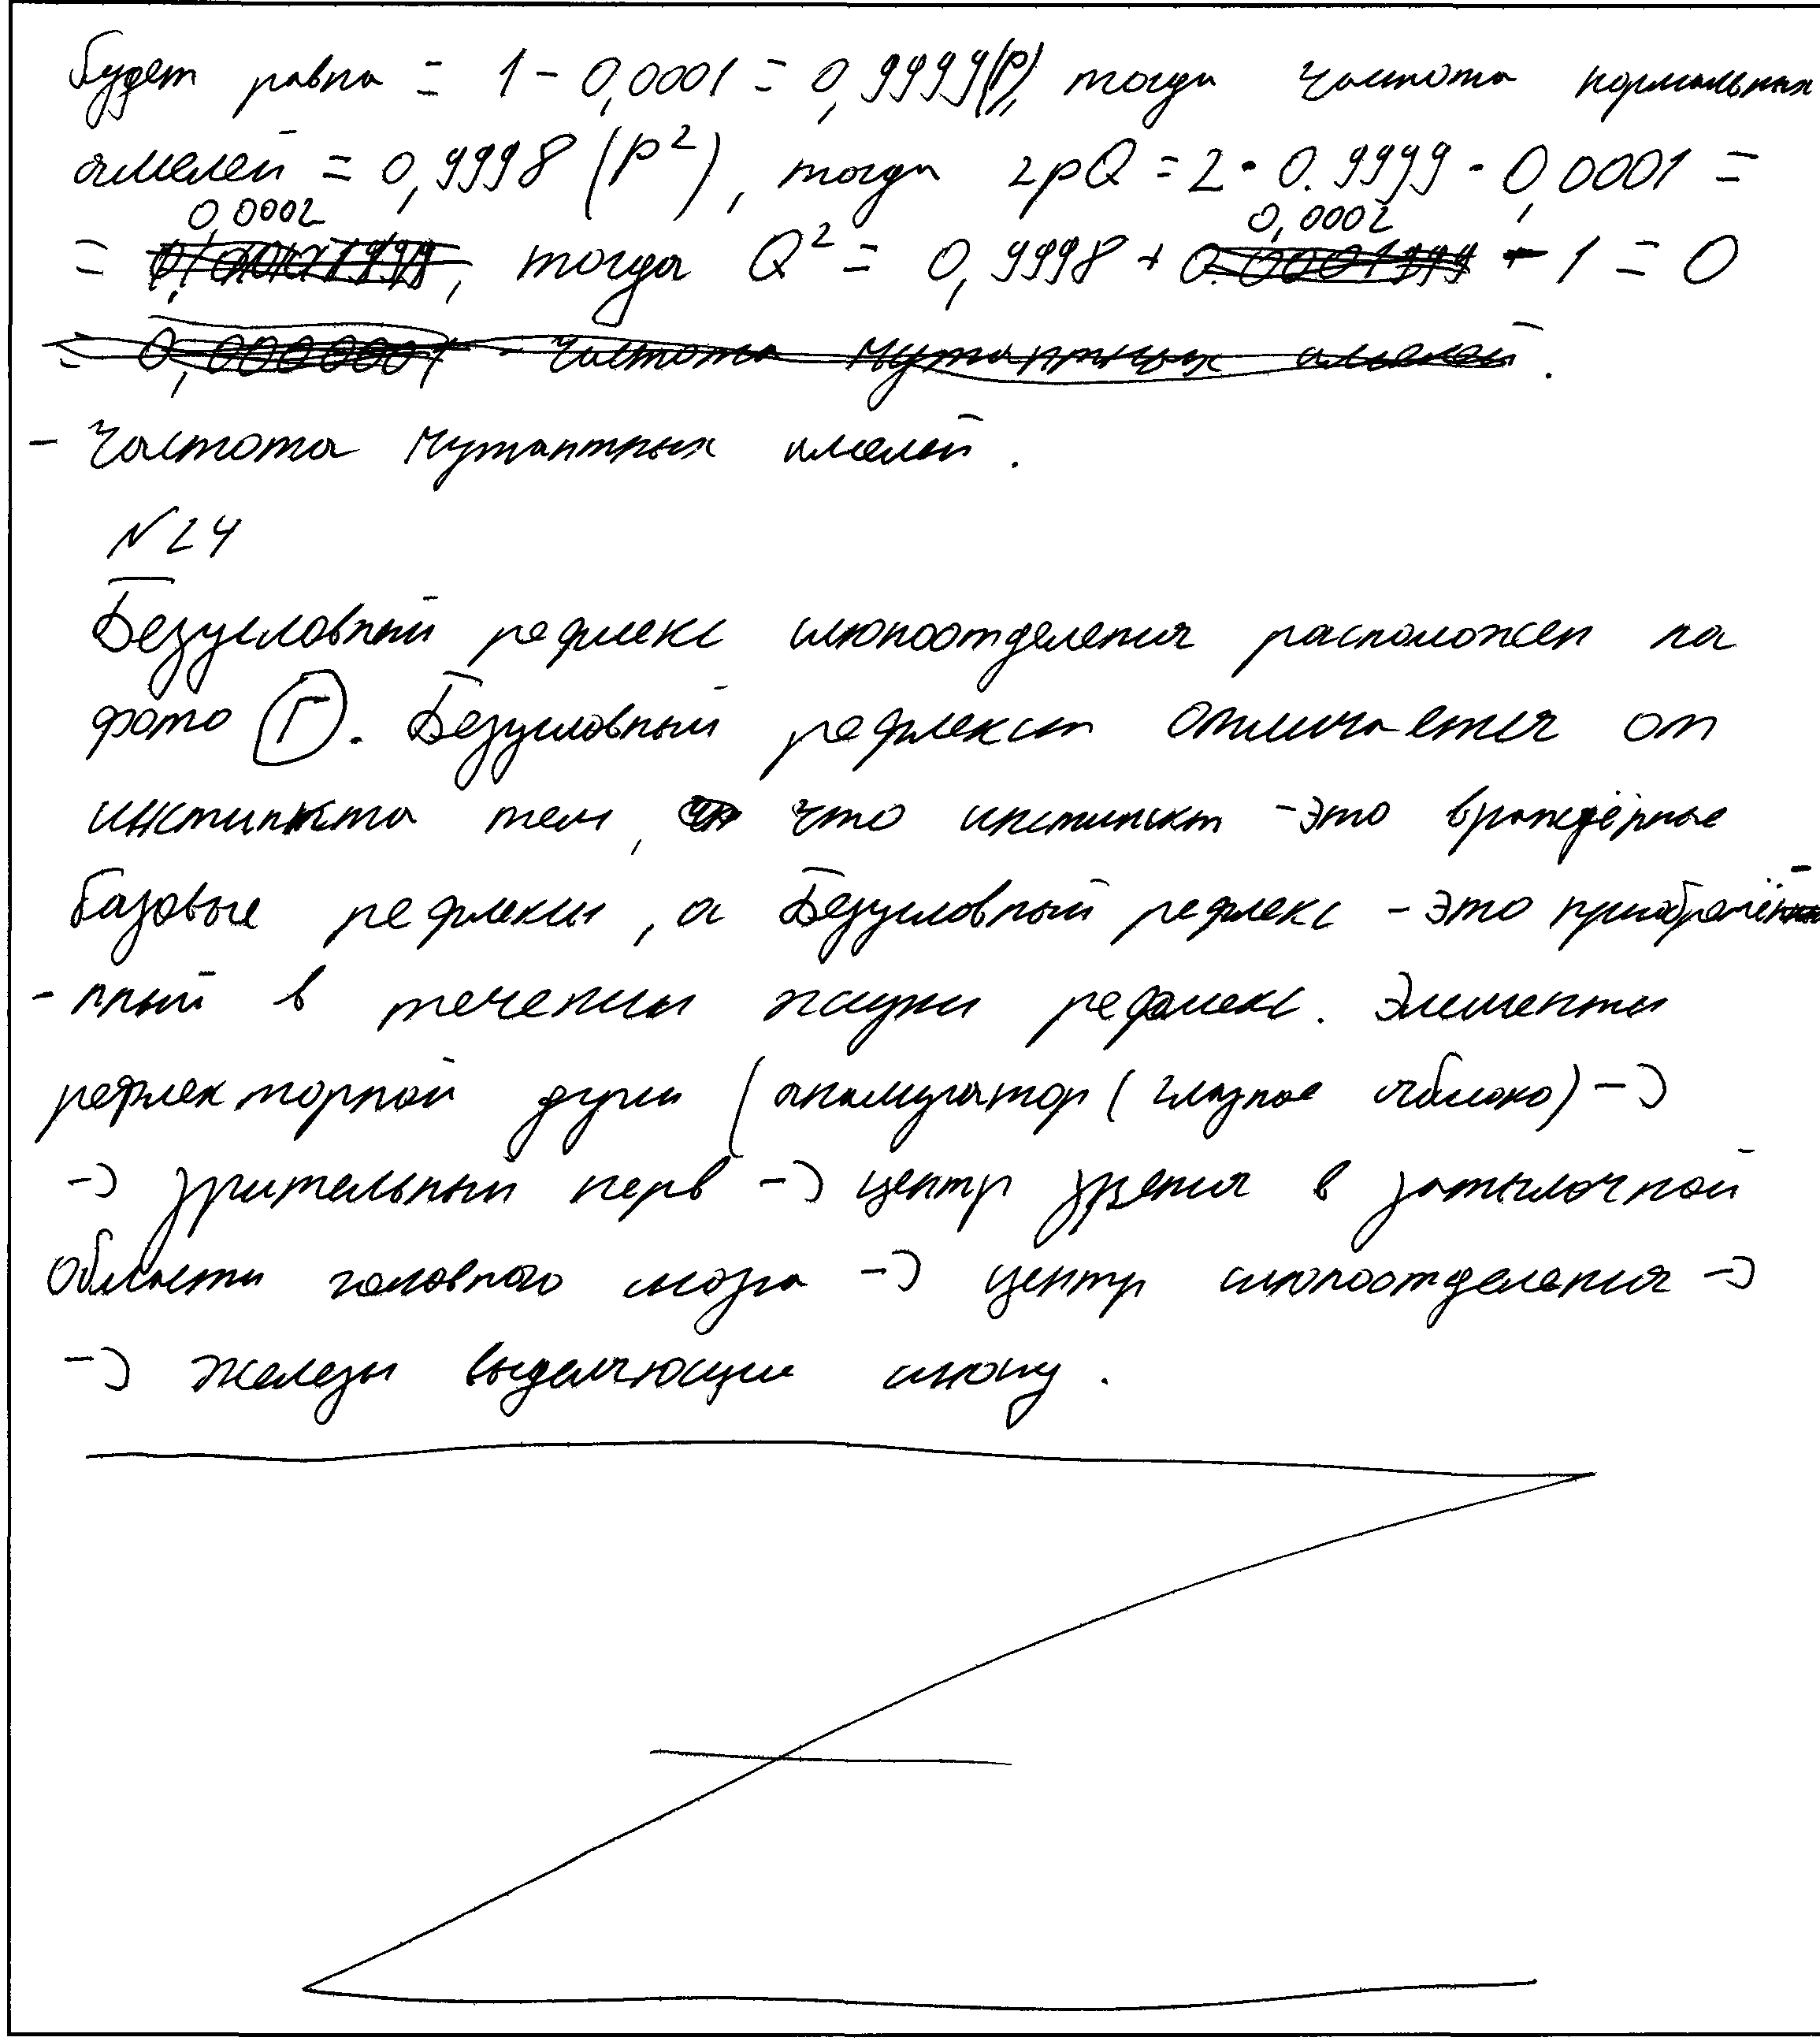 будет равна = 1 - 0,0001 = 0,9999(p), тогда частота нормальных
аллелей = 0,9998 (p²), тогда 2pQ = 2 · 0.9999 · 0,0001 =
= 0,0002, тогда Q² = 0,9998 + 0,0002 - 1 = 0
- частота мутантных аллелей.
N24
Безусловный рефлекс слюноотделения расположен на
фото Г. Безусловный рефлекс отличается от
инстинкта тем, что инстинкт - это врождённые
базовые рефлексы, а Безусловный рефлекс - это приобретён
-нный в течении жизни рефлекс. Элементы
рефлекторной дуги (анализатор (глазное яблоко) ->
-> зрительный нерв -> центр зрения в затылочной
области головного мозга -> центр слюноотделения ->
-> железы выделяющии слюну.